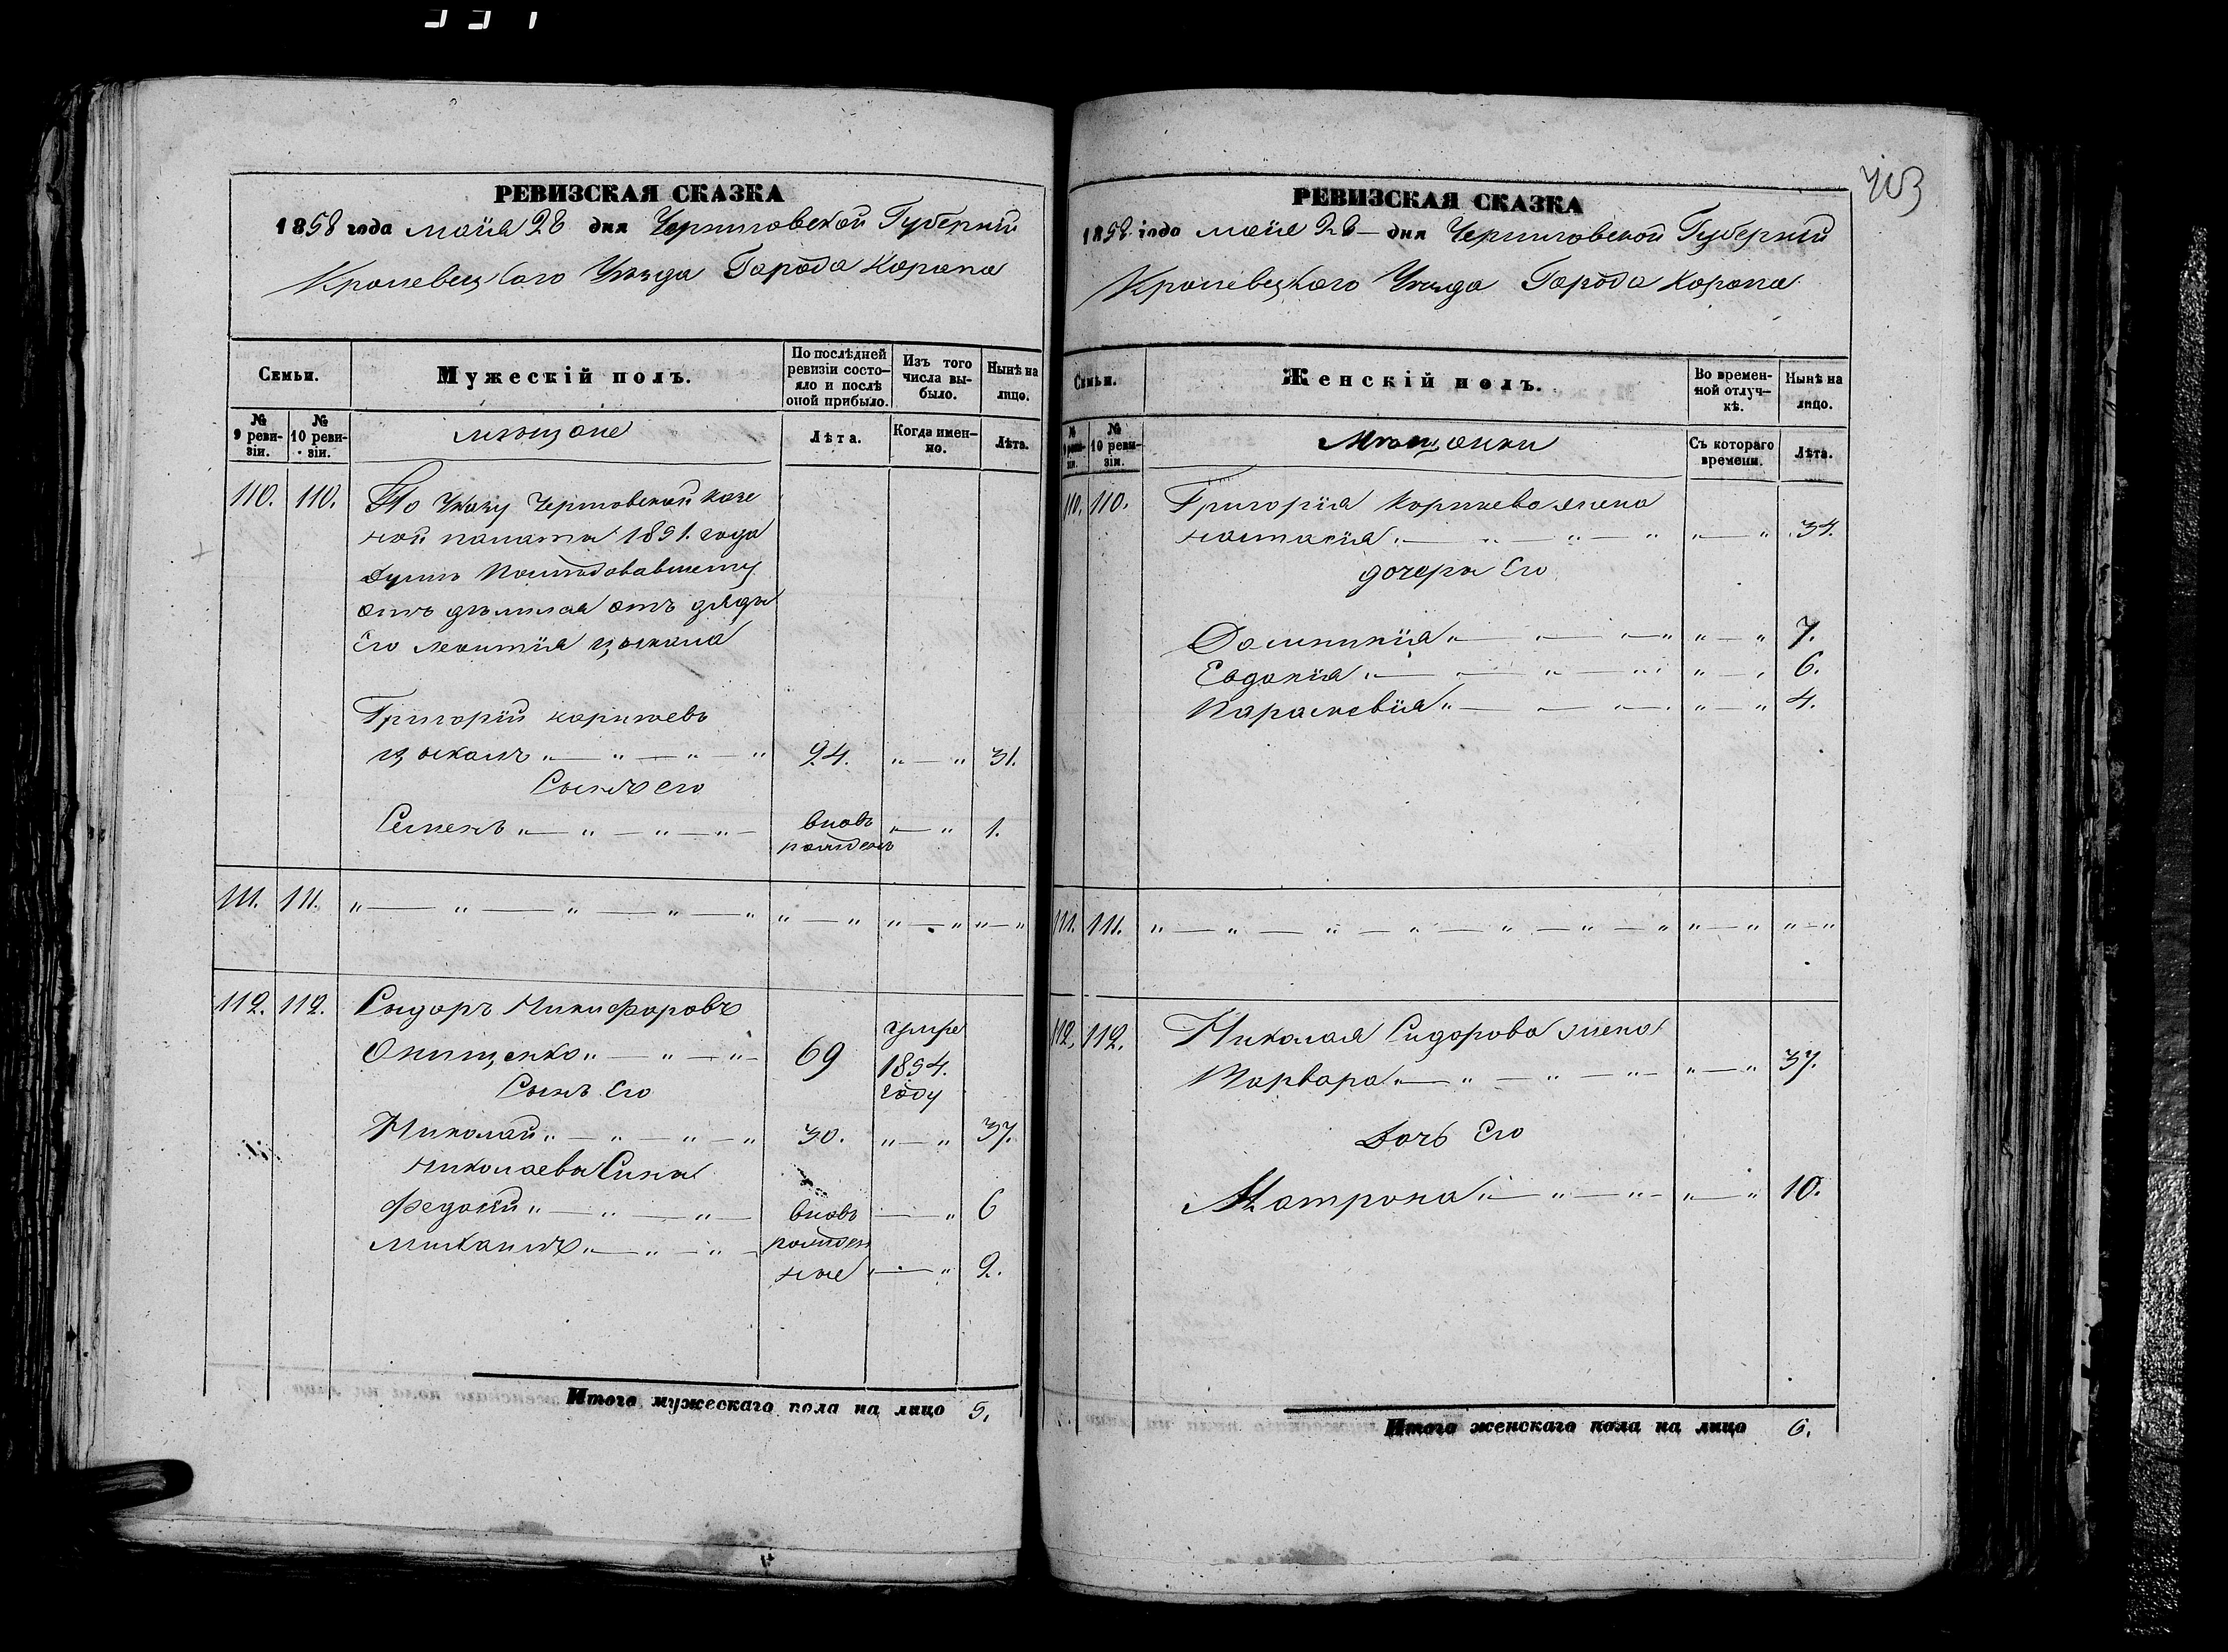 403
РЕВИЗСКАЯ СКАЗКА
1858 года маія 28 дня Черниговской Губерніи
Кролевецкого Уѣзда Города Коропа
Семьи.
Мужескій полъ.
По послѣдней ревизіи состояло и послѣ оной прибыло.
Изъ того числа выбыло.
Нынѣ на лицо.
№ 9 ревизіи.
№ 10 ревизіи.
мѣщане
Лѣта.
Когда именно.
Лѣта.
110. 110. По Указу Черниговской Казе
ной палаты 1851. года
отъ дяди
Его Леонтія Цыкала
Григорій
Цыкалъ 24. 31.
Сынъ его
Семенъ вновь рожденъ 1.
111. 111.
112. 112. Сыдоръ Никифоровъ
Онищенко 69 умре 1854. году
Сынъ Его
Николай 30. 37.
Николаевы Сины
Федосій вновь 6
Михаилъ рожден
ные 2.
Итого мужескаго пола на лицо 5.
РЕВИЗСКАЯ СКАЗКА
1858 года маія 28 дня Черниговской Губерніи
Кролевецкого Уѣзда Города Коропа
Семьи.
Женскій полъ.
Во временной отлучкѣ.
Нынѣ на лицо.
№ 9 ревизіи.
№ 10 ревизіи.
Мѣщанки
Съ котораго времени.
Лѣта.
110. 110. Григорія жена
Настасія 34.
дочери Его
Домникія 7.
Евдокія 6.
Параскевія 4.
111. 111.
112. 112. Николая Сидорова жена
Варвара 37.
Дочь Его
Матрона 10.
Итого женскаго пола на лицо 6.